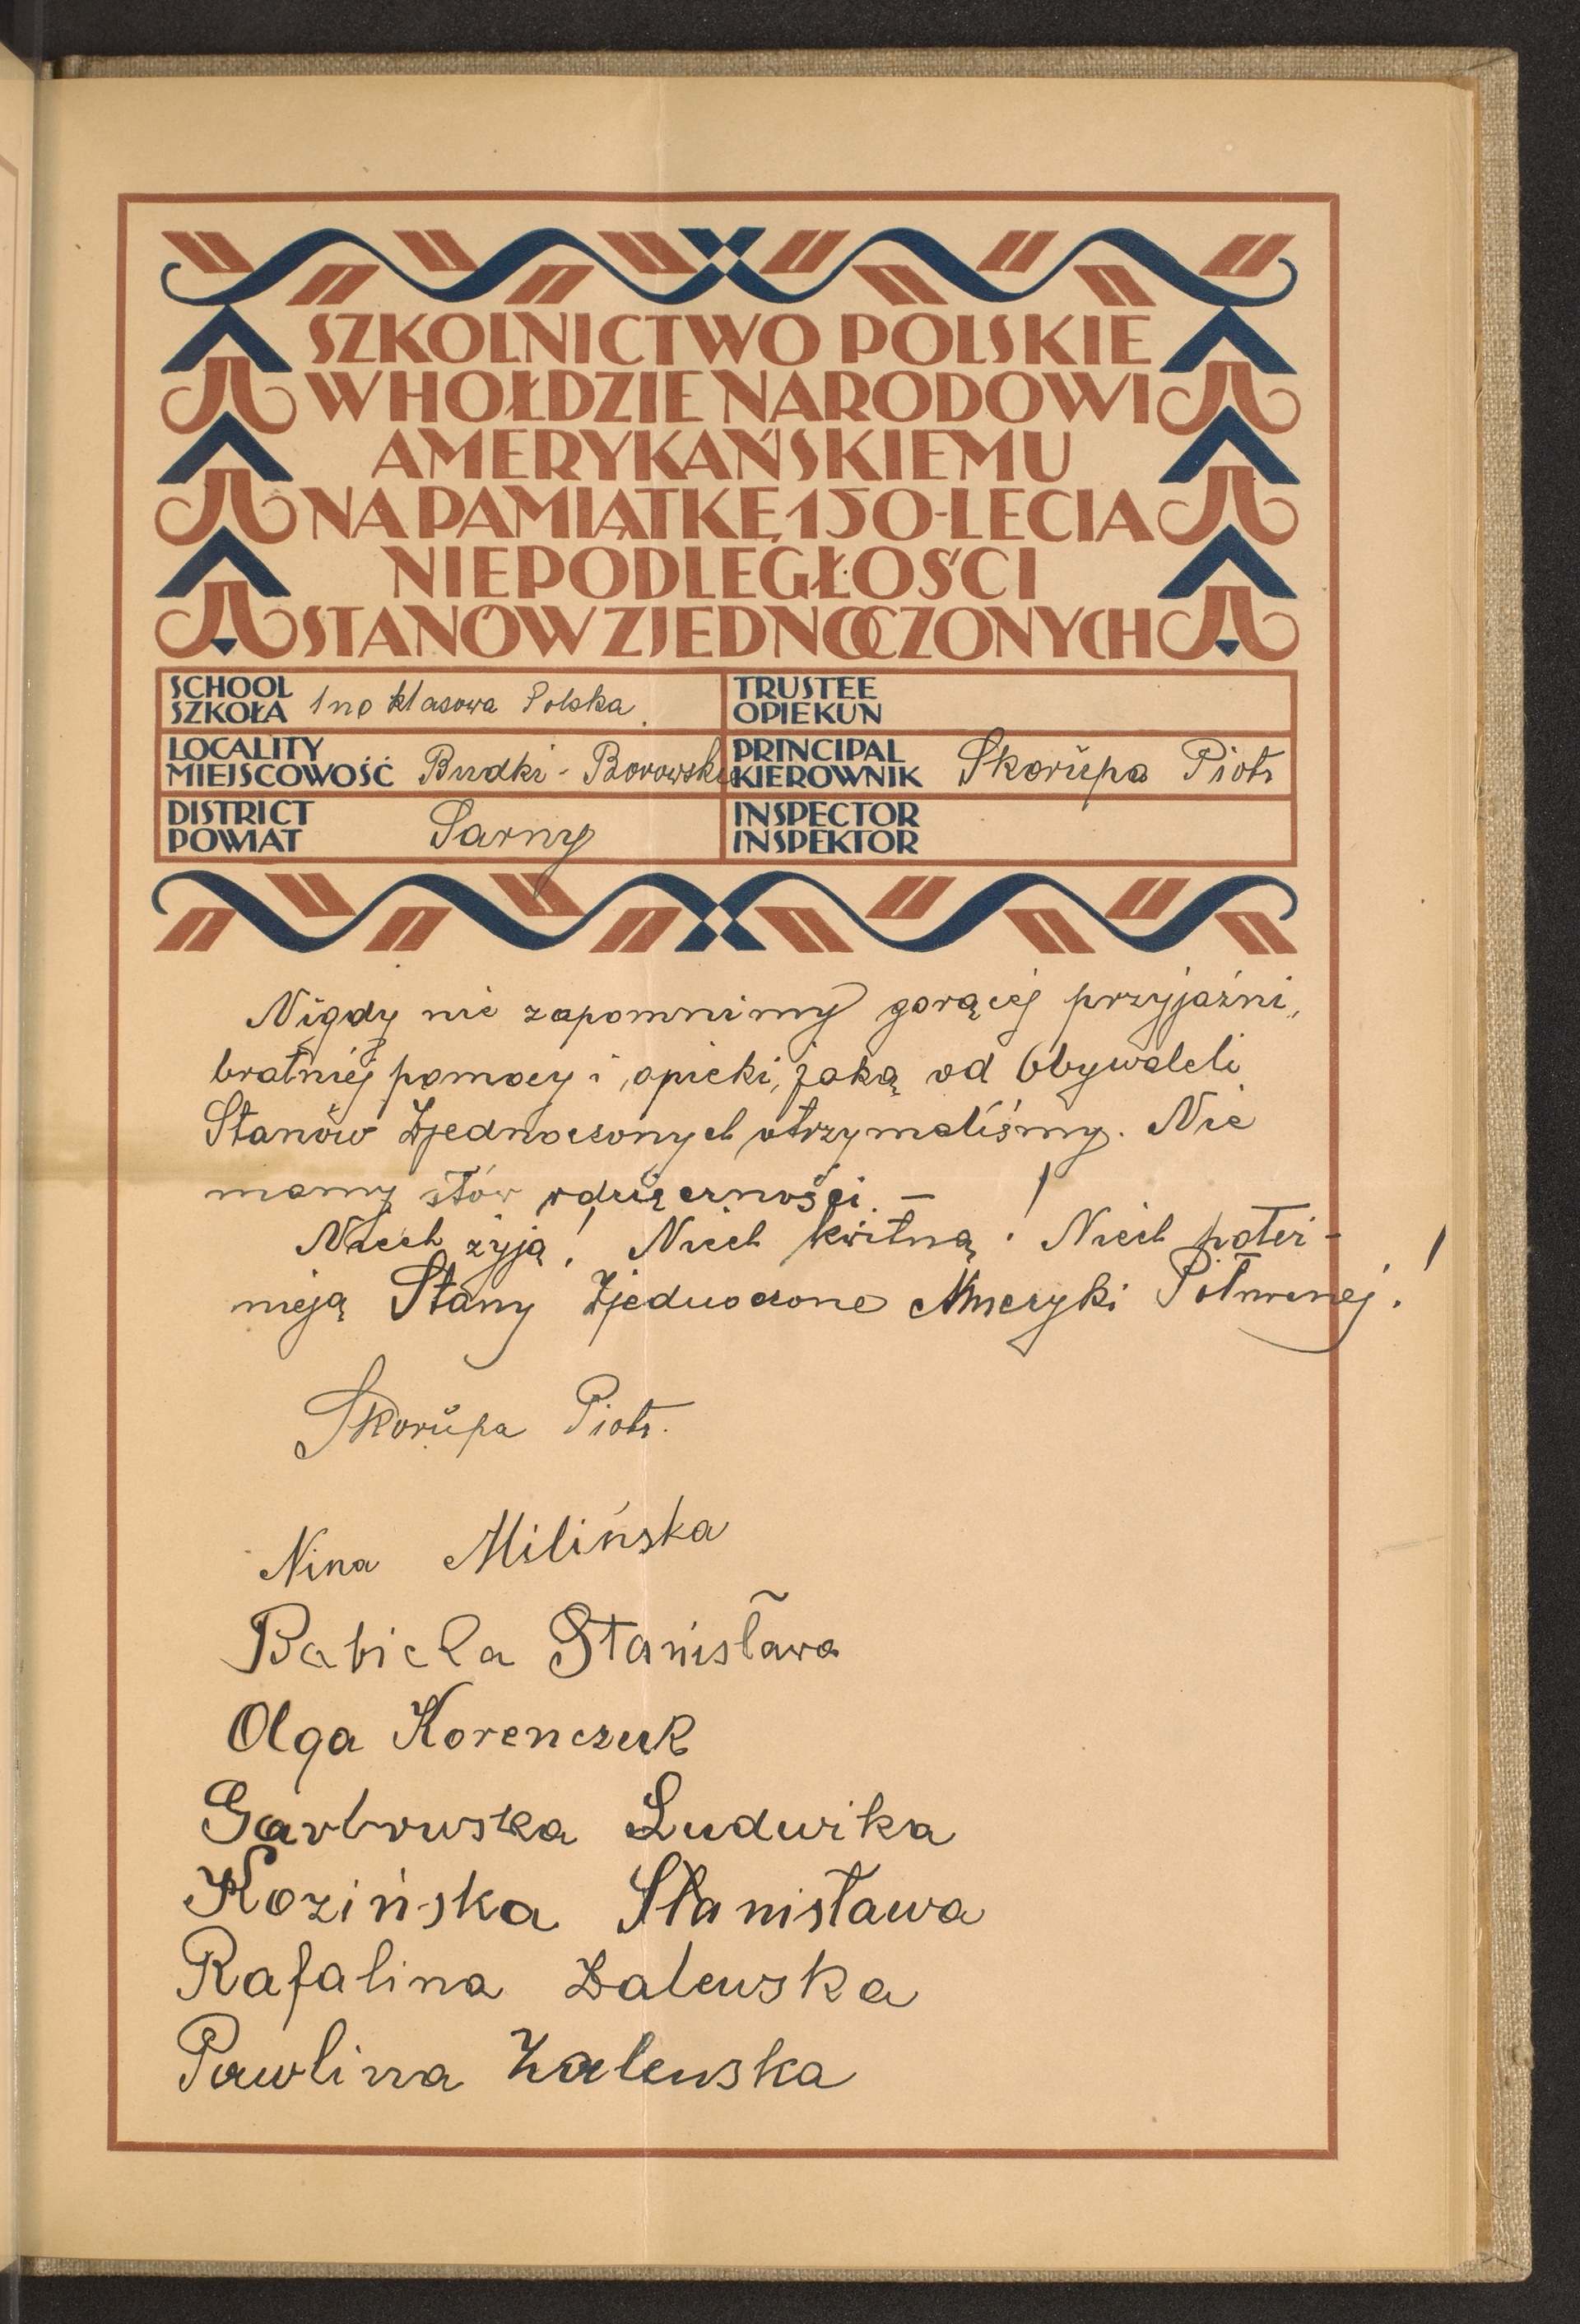 SZKOLNICTWO POLSKIE
W HOŁDZIE NARODOWI
AMERYKAŃSKIEMU
NA PAMIĄTKĘ 150-LECIA
NIEPODLEGŁOŚCI
STANÓW ZJEDNOCZONYCH
SCHOOL
SZKOŁA 1no klasowa Polska.
TRUSTEE
OPIEKUN
LOCALITY
MIEJSCOWOŚĆ Budki - Borowskie
PRINCIPAL
KIEROWNIK Skorupa Piotr
DISTRICT
POWIAT Sarny
INSPECTOR
INSPEKTOR
Nigdy nie zapomnimy gorącej przyjaźni,
bratniej pomocy i opieki, jaką od Obywateli
Stanów Zjednoczonych otrzymaliśmy. Nie
mamy słów wdzięczności. —
Niech żyją! Niech kwitną! Niech potęż-
nieją Stany Zjednoczone Ameryki Północnej!
Skorupa Piotr.
Nina Milińska
Babicka Stanisława
Olga Korenczuk
Garbowska Ludwika
Kozińska Stanisława
Rafalina Zalewska
Pawlina Zalewska